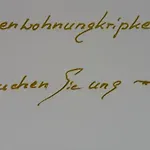 enwohnungkripke
uchen Sie uns